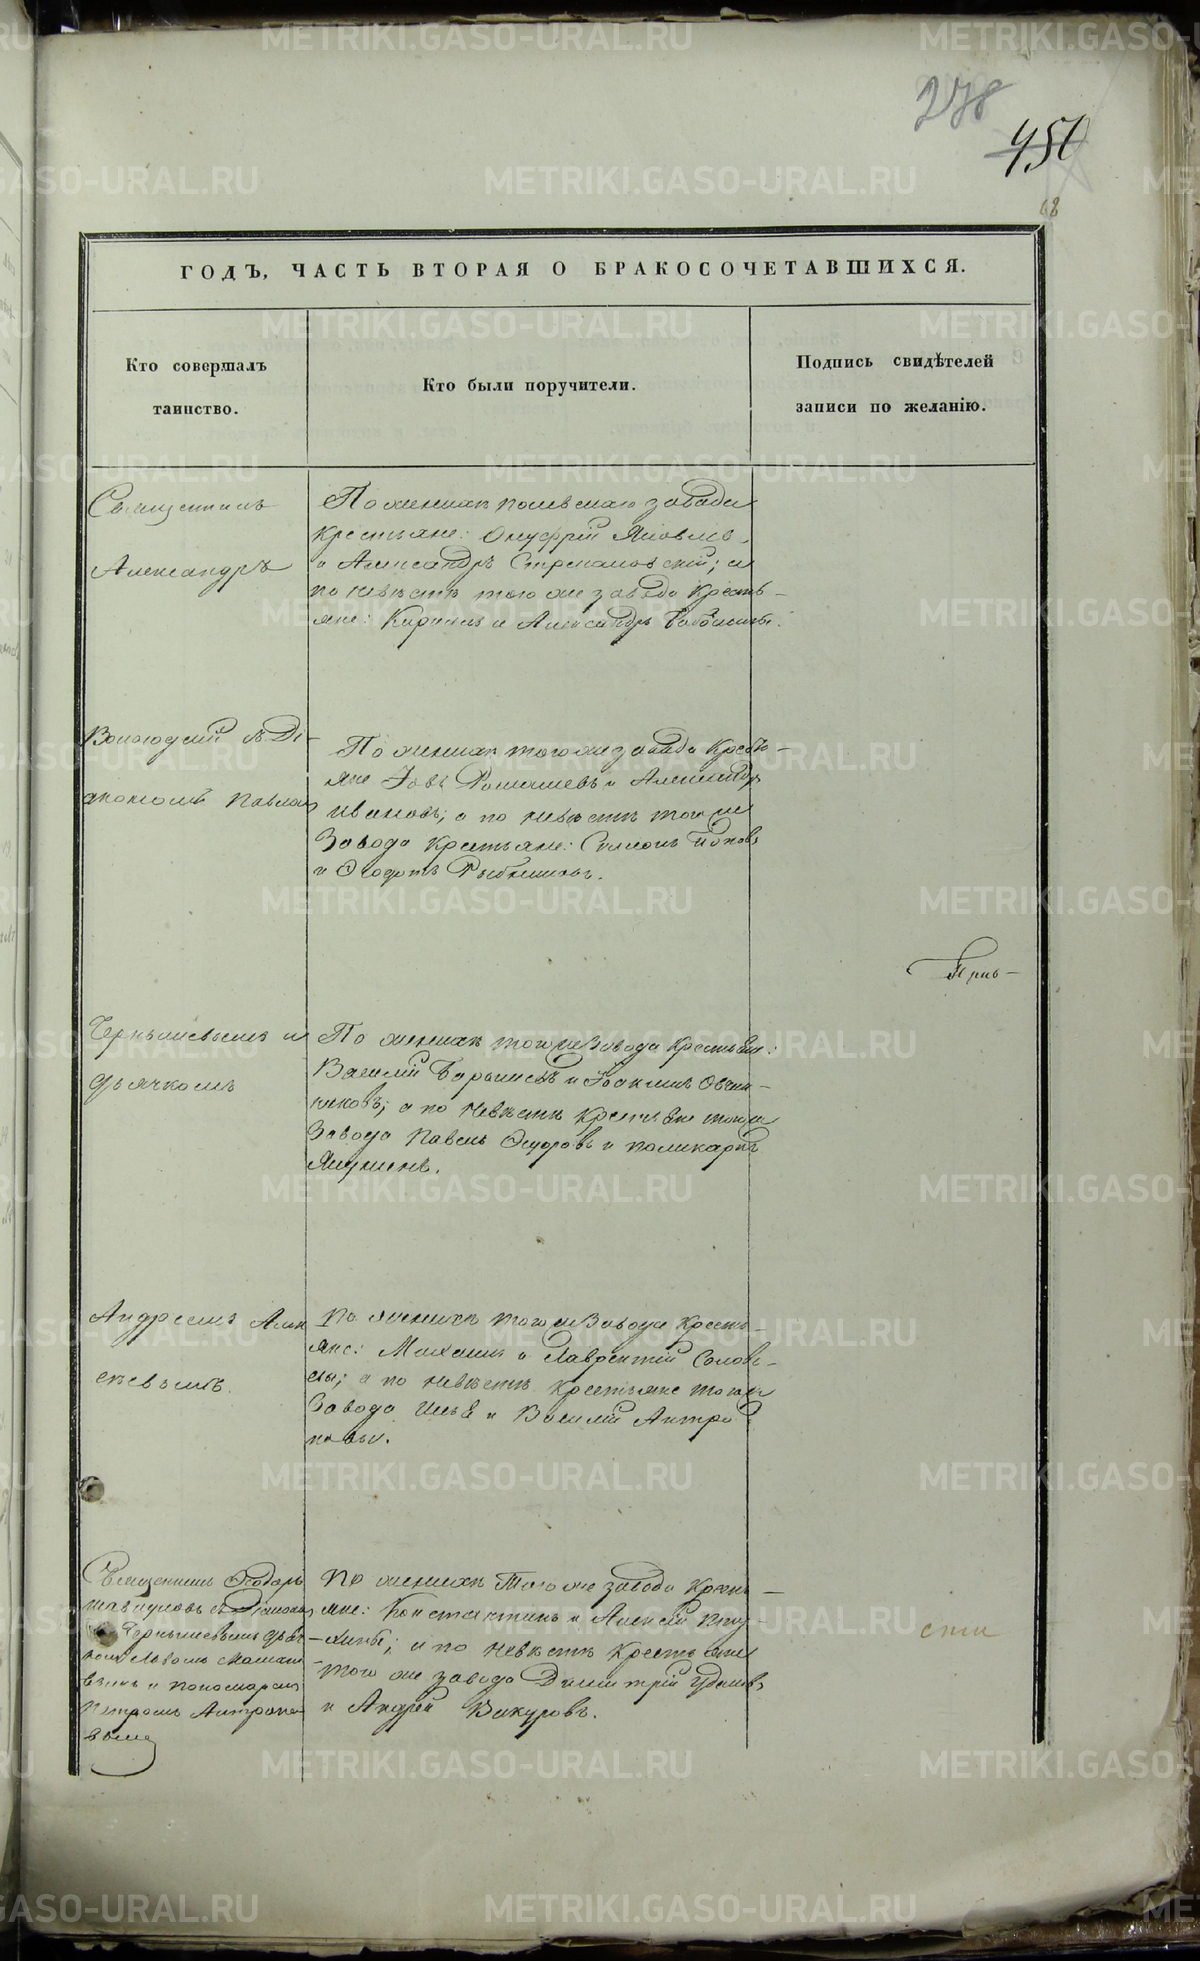 278
450
68
ГОДЪ, ЧАСТЬ ВТОРАЯ О БРАКОСОЧЕТАВШИХСЯ.
Кто совершалъ
таинство.
Кто были поручители.
Подпись свидѣтелей
записи по желанію.
Священникъ
Александръ
По женихѣ Полевскаго завода
крестьяне: Онуфрій Яковлевъ
и Александръ Стремановскій; а
по невѣстѣ того же завода кресть-
яне: Кириллъ и Александръ
съ Ді-
акономъ Павломъ
По женихѣ того же завода кресть-
яне Іовъ Ромашевъ и Александръ
Ивановъ; а по невѣстѣ того же
Завода крестьяне: Симеонъ Поповъ
и Ѳедотъ
Прив-
Чернышевымъ и
дьячкомъ
По женихѣ того же Завода крестьяне:
Василій и Іоакимъ Овчин-
никовъ; а по невѣстѣ крестьяне того же
Завода Павелъ Ѳедоровъ и Поликарпъ
Якунинъ.
Андреемъ Алек
сѣевымъ.
По женихѣ того же Завода кресть-
яне: Михаилъ и Лаврентій Соловь-
евы; а по невѣстѣ крестьяне того же
Завода Илья и Василій Антро
повы.
Священникъ Ѳедоръ
съ Діакономъ
Чернышевымъ дьяч-
комъ Львомъ
и Пономаремъ
Петромъ Антропо
вымъ
По женихѣ того же завода кресть-
яне: Константинъ и Алексѣй Пту-
хины; а по невѣстѣ крестьяне
того же завода Димитрій
и Андрей Вакуровъ.
сти
METRIKI.GASO-URAL.RU